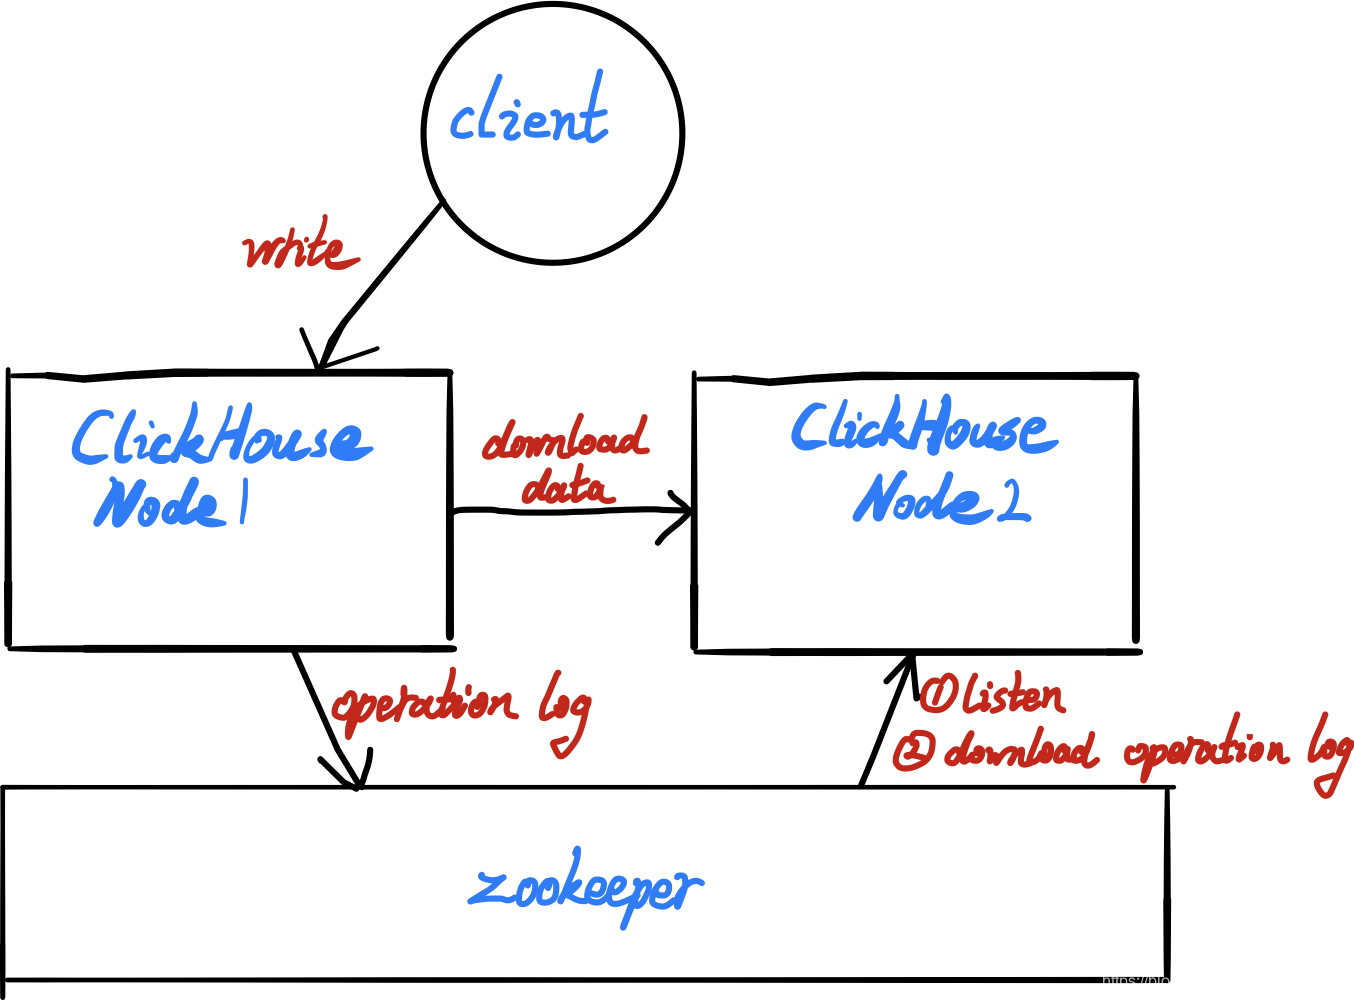 client
write
ClickHouse
Node 1
download
data
ClickHouse
Node 2
operation log
① listen
② download operation log
zookeeper